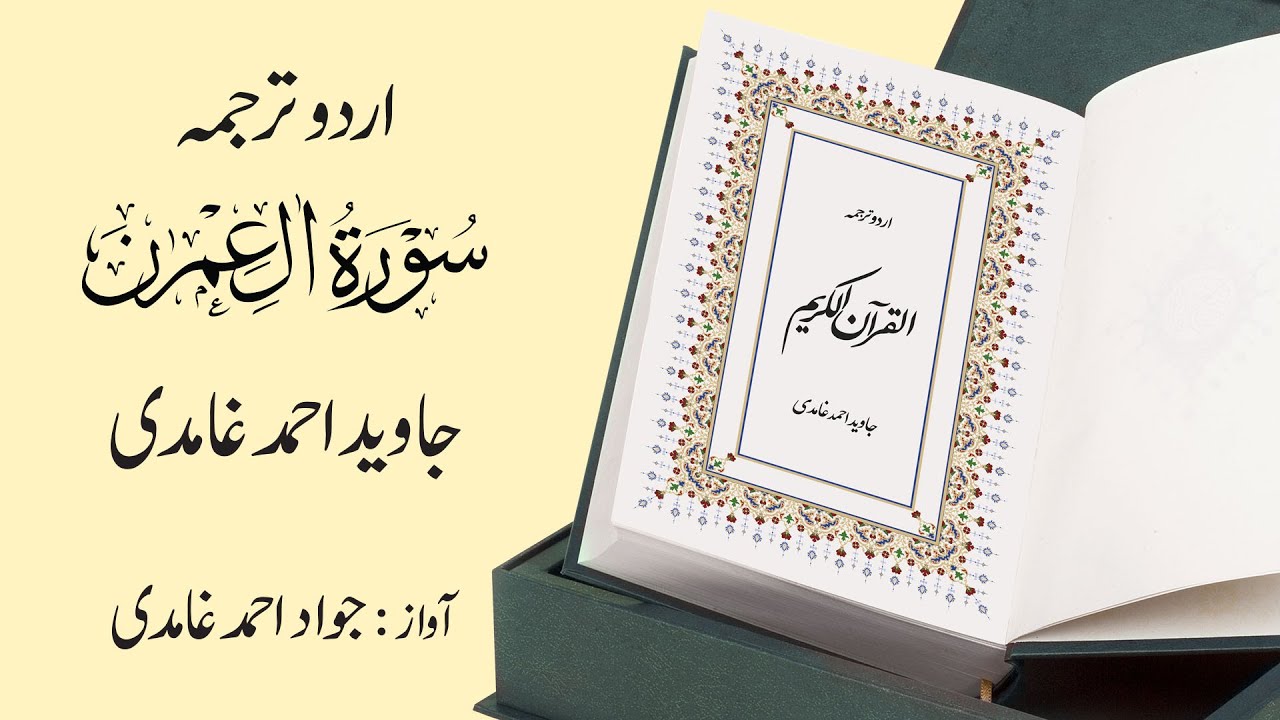 اردو ترجمہ
سُوْرَةُ اٰلِ عِمْرٰنَ
جاوید احمد غامدی
آواز : جواد احمد غامدی
اردو ترجمہ
القرآن الکریم
جاوید احمد غامدی